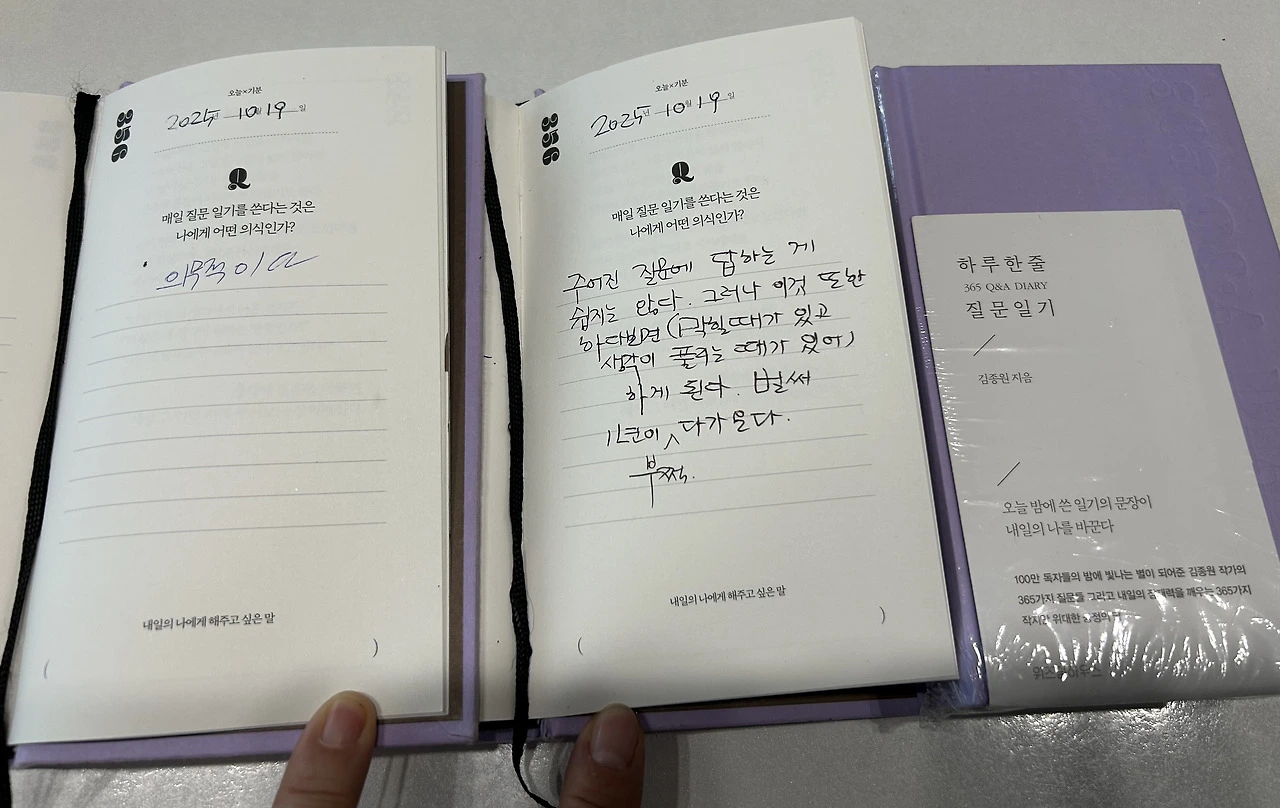 오늘×기분
356
2025년 10월 19일
Q
매일 질문 일기를 쓴다는 것은
나에게 어떤 의식인가?
의무적이다
내일의 나에게 해주고 싶은 말
( )
오늘×기분
356
2025년 10월 19일
Q
매일 질문 일기를 쓴다는 것은
나에게 어떤 의식인가?
주어진 질문에 답하는 게
쉽지는 않다. 그러나 이것 또한
하다보면 (막힐때가 있고
생각이 풀리는 때가 있어)
하게 된다. 벌써
1년이 다가온다.
부쩍.
내일의 나에게 해주고 싶은 말
( )
하루한줄
365 Q&A DIARY
질문일기
김종원 지음
오늘 밤에 쓴 일기의 문장이
내일의 나를 바꾼다
100만 독자들의 밤에 빛나는 별이 되어준 김종원 작가의
365가지 질문들 그리고 내일의 잠재력을 깨우는 365가지
작지만 위대한 긍정의
위즈덤하우스